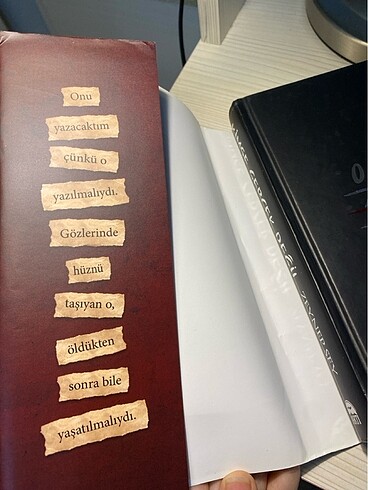 Onu
yazacaktım
çünkü o
yazılmalıydı.
Gözlerinde
hüznü
taşıyan o,
öldükten
sonra bile
yaşatılmalıydı.
ZEYNEP SEY